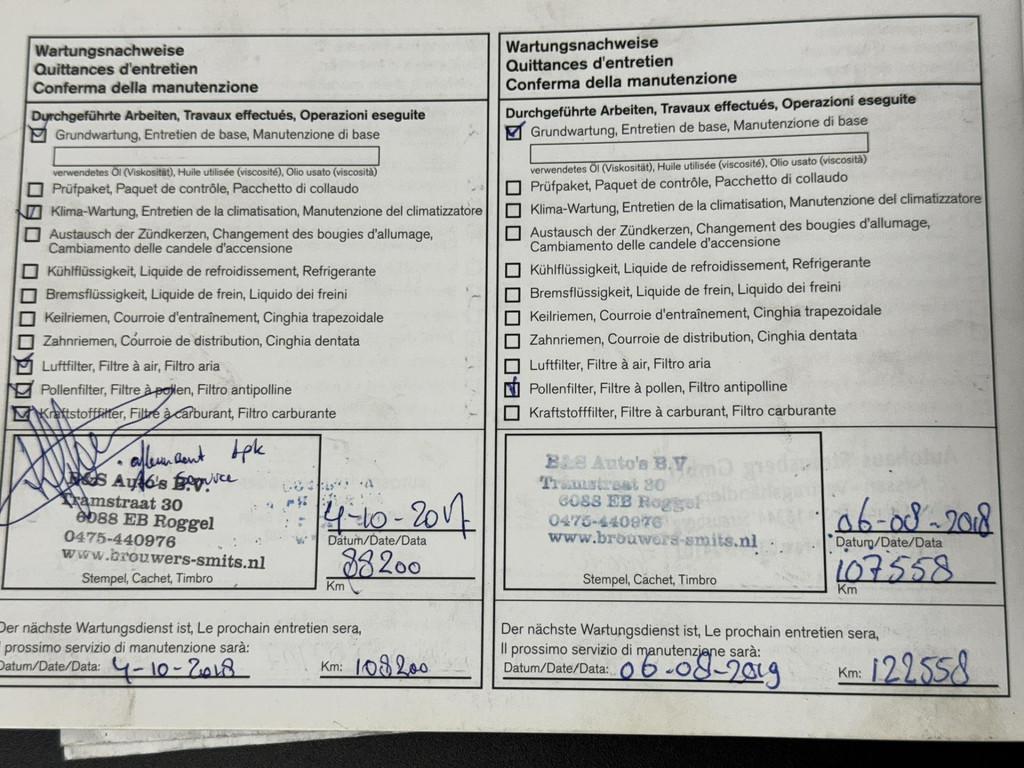 Wartungsnachweise
Quittances d'entretien
Conferma della manutenzione
Durchgeführte Arbeiten, Travaux effectués, Operazioni eseguite
Grundwartung, Entretien de base, Manutenzione di base
verwendetes Öl (Viskosität), Huile utilisée (viscosité), Olio usato (viscosità)
Prüfpaket, Paquet de contrôle, Pacchetto di collaudo
Klima-Wartung, Entretien de la climatisation, Manutenzione del climatizzatore
Austausch der Zündkerzen, Changement des bougies d'allumage,
Cambiamento delle candele d'accensione
Kühlflüssigkeit, Liquide de refroidissement, Refrigerante
Bremsflüssigkeit, Liquide de frein, Liquido dei freini
Keilriemen, Courroie d'entraînement, Cinghia trapezoidale
Zahnriemen, Courroie de distribution, Cinghia dentata
Luftfilter, Filtre à air, Filtro aria
Pollenfilter, Filtre à pollen, Filtro antipolline
Kraftstofffilter, Filtre à carburant, Filtro carburante
B&S Auto's B.V.
Tramstraat 30
6088 EB Roggel
0475-440976
www.brouwers-smits.nl
Stempel, Cachet, Timbro
4-10-2017
Datum/Date/Data
88200
Km
Der nächste Wartungsdienst ist, Le prochain entretien sera,
Il prossimo servizio di manutenzione sarà:
Datum/Date/Data: 4-10-2018 Km: 108200
Wartungsnachweise
Quittances d'entretien
Conferma della manutenzione
Durchgeführte Arbeiten, Travaux effectués, Operazioni eseguite
Grundwartung, Entretien de base, Manutenzione di base
verwendetes Öl (Viskosität), Huile utilisée (viscosité), Olio usato (viscosità)
Prüfpaket, Paquet de contrôle, Pacchetto di collaudo
Klima-Wartung, Entretien de la climatisation, Manutenzione del climatizzatore
Austausch der Zündkerzen, Changement des bougies d'allumage,
Cambiamento delle candele d'accensione
Kühlflüssigkeit, Liquide de refroidissement, Refrigerante
Bremsflüssigkeit, Liquide de frein, Liquido dei freini
Keilriemen, Courroie d'entraînement, Cinghia trapezoidale
Zahnriemen, Courroie de distribution, Cinghia dentata
Luftfilter, Filtre à air, Filtro aria
Pollenfilter, Filtre à pollen, Filtro antipolline
Kraftstofffilter, Filtre à carburant, Filtro carburante
B&S Auto's B.V.
Tramstraat 30
6088 EB Roggel
0475-440976
www.brouwers-smits.nl
Stempel, Cachet, Timbro
06-08-2018
Datum/Date/Data
107558
Km
Der nächste Wartungsdienst ist, Le prochain entretien sera,
Il prossimo servizio di manutenzione sarà:
Datum/Date/Data: 06-08-2019 Km: 122558